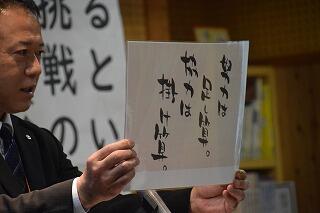 努力は
足し算。
協力は
掛け算。
ると
挑戦
のい